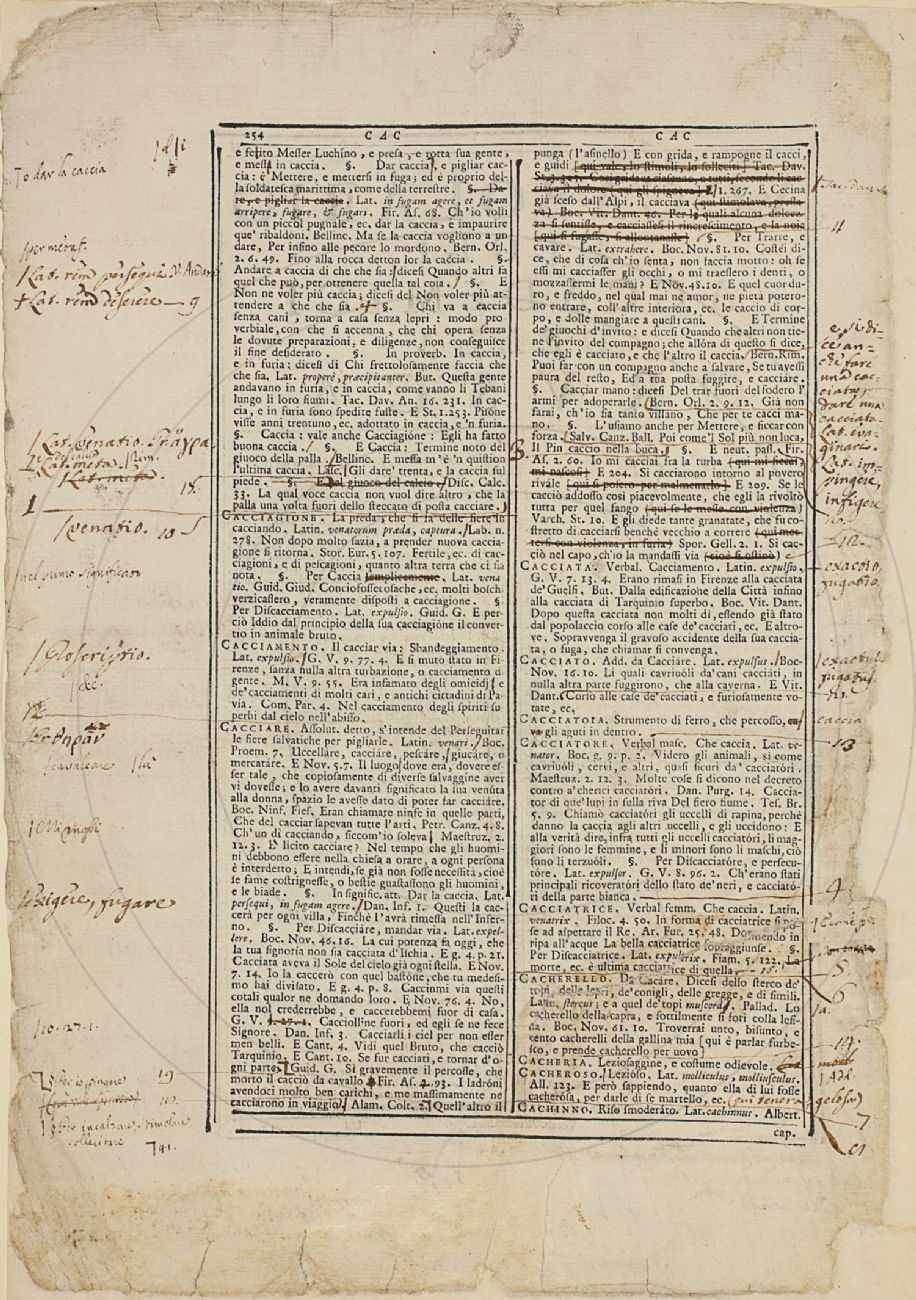 254 CAC CAC
e ferito Messer Luchino, e presa, e rotta sua gente,
e messa in caccia. §. Dar caccia, e pigliar cac-
cia: è Mettere, e mettersi in fuga; ed è proprio del-
la soldatesca marittima, come della terrestre. §. Da-
re, e pigliar la caccia. Lat. in fugam agere, et fugam
arripere, fugare, & fugari. Fir. As. 68. Ch'io volli
con un piccol pugnale, ec. dar la caccia, e impaurire
que' ribaldoni. Bellinc. Ma se la caccia vogliono a un
dare, Per infino alle pecore lo mordono. Bern. Orl.
2. 6. 49. Fino alla rocca detton lor la caccia. §.
Andare a caccia di che che sia: dicesi Quando altri fa
quel che può, per ottenere quella tal cosa. §. E
Non ne voler più caccia; dicesi del Non voler più at-
tendere a che che sia. §. Chi va a caccia
senza cani, torna a casa senza lepri: modo pro-
verbiale, con che si accenna, che chi opera senza
le dovute preparazioni, e diligenze, non conseguisce
il fine desiderato. §. In proverb. In caccia,
e in furia: dicesi di Chi frettolosamente faccia che
che sia. Lat. properè, præcipitanter. But. Questa gente
andavano in furia, e in caccia, come vanno li Tebani
lungo li loro fiumi. Tac. Dav. An. 16. 231. In cac-
cia, e in furia sono spedite fuste. E St. 1. 253. Pisone
visse anni trentuno, ec. adottato in caccia, e 'n furia.
§. Caccia: vale anche Cacciagióne: Egli ha fatto
buona caccia. §. E Caccia: Termine noto del
giuoco della palla. Bellinc. E messa m'è 'n quistion
l'ultima caccia. Lasc. Gli dare' trenta, e la caccia sul
piede. §. E del giuoco del calcio. Disc. Calc.
33. La qual voce caccia non vuol dire altro, che la
palla una volta fuori dello steccato di posta cacciare.
CACCIAGIONE. La preda, che si fa delle fiere in
cacciando. Latin. venatorum præda, captura. Lab. n.
278. Non dopo molto sazia, a prender nuova caccia-
gione si ritorna. Stor. Eur. 5. 107. Fertile, ec. di cac-
ciagioni, e di pescagioni, quanto altra terra che ci sia
nota. §. Per Caccia semplicemente. Lat. vena
tio. Guid. Giud. Conciofossecosache, ec. molti bosch
verzicassero, veramente disposti a cacciagione. §
Per Discacciamento. Lat. expulsio. Guid. G. E per-
ciò Iddio dal principio della sua cacciagione il conver-
tio in animale bruto.
CACCIAMENTO. Il cacciar via: Sbandeggiamento.
Lat. expulsio. G. V. 9. 77. 4. E si muto stato in Fi
renze, sanza nulla altra turbazione, o cacciamento d
gente. M. V. 9. 55. Era infamato degli omicidj e
de' cacciamenti di molti cari, e antichi cittadini di Pa-
via. Com. Par. 4. Nel cacciamento degli spiriti su
perbi dal cielo nell'abisso.
CACCIARE. Assolut. detto, s'intende del Perseguitar
le fiere salvatiche per pigliarle. Latin. venari. Boc.
Proem. 7. Uccellare, cacciáre, pescáre, giucáre, o
mercatáre. E Nov. 5. 7. Il luogo dove era, dovere es-
ser tale, che copiosamente di diverse salvaggine aver
vi dovesse; e lo avere davanti significato la sua venuta
alla donna, spazio le avesse dato di poter far cacciáre.
Boc. Ninf. Fies. Eran chiamate ninfe in quelle parti,
Che del cacciar sapevan tutte l'arti. Petr. Canz. 4. 8.
Ch'un dì cacciando, siccom'io soleva Maestruz. 2.
12. 3. E' licito cacciare? Nel tempo che gli huomi-
ni debbono essere nella chiesa a orare, a ogni persona
è interdetto; E intendi, se già non fosse necessità, cioè
se fame costrignesse, o bestie guastassono gli huomini,
e le biade. §. In signific. att. Dar la caccia. Lat.
persequi, in fugam agere. Dan. Inf. 1. Questi la cac-
cerà per ogni villa, Finchè l'avrà rimessa nell'Infer-
no. §. Per Discacciáre, mandar via. Lat. expel-
lere. Boc. Nov. 46. 16. La cui potenza fa oggi, che
la tua signoría non sia cacciata d'Ischia. E g. 4. p. 21.
Cacciata aveva il Sole del cielo già ogni stella. E Nov.
7. 14. Io la caccerò con quel bastóne, che tu medesi-
mo hai divisato. E g. 4. p. 8. Caccinmi via questi
cotali qualor ne domando loro. E Nov. 76. 4. No,
ella nol crederrebbe, e caccerebbemi fuor di casa.
G. V. 8. 27. 1. Cacciolline fuori, ed egli se ne fece
Signore. Dan. Inf. 3. Cacciarli i ciel per non esser
men belli. E Cant. 4. Vidi quel Bruto, che cacciò
Tarquinio. E Cant. 10. Se fur cacciati, e tornar d'o-
gni parte. Guid. G. Sì gravemente il percosse, che
morto il cacciò da cavallo. Fir. As. 2. 93. I ladróni
avendoci molto ben carichi, e me massimamente ne
cacciarono in viaggio. Alam. Colt. 2. Quell'altro il
punga (l'asinello) E con grida, e rampogne il cacci,
e guidi [qui val, lo stimoli, lo solleciti]. Tac. Dav.
E 1. 267. E Cecina
già sceso dall'Alpi, il cacciava (qui stimolava, pressa-
va). Boc. Vit. Dant. 46. Per la quali alcuna dolcez-
za si sentisse, e cacciassesi il rincrescimento, e la noia
[qui si fugasse, si allontanasse]. §. Per Trarre, e
cavare. Lat. extrahere. Boc. Nov. 81. 10. Costei di-
ce, che di cosa ch'io senta, non faccia motto: oh se
essi mi cacciasser gli occhi, o mi traessero i denti, o
mozzassermi le mani? E Nov. 48. 10. E quel cuor du-
ro, e freddo, nel qual mai ne amor, ne pietà potero-
no entrare, coll'altre interiora, ec. le caccio di cor-
po, e dolle mangiare a questi cani. §. E Termine
de' giuochi d'invito: e dicesi Quando che altri non tie-
ne l'invito del compagno; che allóra di questo si dice,
che egli è cacciato, e che l'altro il caccia. Bern. Rim.
Puoi far con un compagno anche a salvare, Se tu avessi
paura del resto, Ed a tua posta fuggire, e cacciáre.
§. Cacciar mano: dicesi Del trar fuori del fodero l'
armi per adoperarle. Bern. Orl. 2. 9. 12. Già non
farai, ch'io sia tanto villano, Che per te cacci ma-
no. §. L'usiamo anche per Mettere, e ficcar con
forza. Salv. Canz. Ball. Poi come'l Sol più non luca,
Il Pin caccio nella buca. §. E neut. pass. Fir.
As. 2. 60. Io mi cacciai fra la turba (qui mi ficcai,
mi nascosi) E 204. Si cacciarono intorno al povero
rivále [qui si posero per malmenarlo] E 209. Se le
cacciò addosso così piacevolmente, che egli la rivoltò
tutta per quel fango (qui se le messe con violenza)
Varch. St. 10. E gli diede tante granatate, che fu co-
stretto di cacciarsi benchè vecchio a correre (qui met-
tersi con violenza, in furia) Spor. Gell. 2. 1. Si cac-
ciò nel capo, ch'io la mandassi via (cioè si ostinò)
CACCIATA. Verbal. Cacciamento. Latin. expulsio.
G. V. 7. 13. 4. Erano rimasi in Firenze alla cacciata
de' Guelfi. But. Dalla edificazione della Città infino
alla cacciata di Tarquinio superbo. Boc. Vit. Dant.
Dopo questa cacciata non molti dì, essendo già stato
dal popolaccio corso alle case de' cacciati, ec. E altro-
ve. Sopravvenga il gravoso accidente della sua caccia-
ta, o fuga, che chiamar si convenga.
CACCIATO. Add. da Cacciáre. Lat. expulsus. Boc-
Nov. 16. 10. Li quali cavriuóli da' cani cacciati, in
nulla altra parte fuggirono, che alla caverna. E Vit.
Dant. Corso alle case de' cacciati, e furiosamente vo-
tate, ec.
CACCIATOIA. Strumento di ferro, che percosso, ca-
va gli aguti in dentro.
CACCIATORE. Verbal masc. Che caccia. Lat. ve-
nator. Boc. g. 9. p. 2. Videro gli animali, sì come
cavriuóli, cervi, e altri, quasi sicuri da' cacciatóri.
Maestruz. 2. 12. 3. Molte cose si dicono nel decreto
contro a' cherici cacciatóri. Dan. Purg. 14. Caccia-
tor di que' lupi in sulla riva Del fiero fiume. Tes. Br.
5. 9. Chiamò cacciatóri gli uccelli di rapina, perchè
danno la caccia agli altri uccelli, e gli uccidono: E
alla verità dire, infra tutti gli uccelli cacciatóri, li mag-
giori sono le femmine, e li minori sono li maschi, ciò
sono li terzuóli. §. Per Discacciatóre, e persecu-
tóre. Lat. expulsor. G. V. 8. 96. 2. Ch'erano stati
principali ricoveratóri dello stato de' neri, e cacciató-
ri della parte bianca.
CACCIATRICE. Verbal femm. Che caccia. Latin.
venatrix. Filoc. 4. 50. In forma di cacciatrice si po-
se ad aspettare il Re. Ar. Fur. 25. 48. Dormendo in
ripa all'acque La bella cacciatrice sopraggiunse. §.
Per Discacciatrice. Lat. expultrix. Fiam. 5. 122. La
morte, ec. è ultima cacciatrice di quella
CACHERELLO. Da Cacáre. Dicesi dello sterco de'
topi, delle lepri, de' conigli, delle gregge, e di simili.
Latin. stercus; e a quel de' topi muscerda. Pallad. Lo
cacherello della capra, e sottilmente si fori colla lesi-
na. Boc. Nov. 61. 10. Troverrai unto, bisunto, e
cento cacherelli della gallina mia [qui è parlar furbe-
sco, e prende cacherello per uovo]
CACHERIA. Leziosaggine, e costume odievole.
CACHEROSO. Lezióso. Lat. molliculus, molliusculus.
All. 123. E però sappiendo, quanto ella di lui fosse
cacherósa, per darle di se martello, ec. (qui tenera
CACHINNO. Riso smoderáto. Lat. cachinnus. Albert.
cap.
o dar la caccia
per metaf.
Lat. rem persequi
Lat. rem deserere 9
Lat. venatio.
Lat. meta.
15.
1
venatio. 10
nel primo significato
&c.
cavalcare
exigere, fugare
10. 27. 1.
19
10.
sollecitare
11
e si di-
ce an-
che fare
una cac-
ciata,
dare una
cacciata.
Lat. im-
pingere,
infigere
12.
exactio,
fugatio.
exactus
fugatus
caccia
13
4.
5.
6
14.
Add.
gelosa)
7